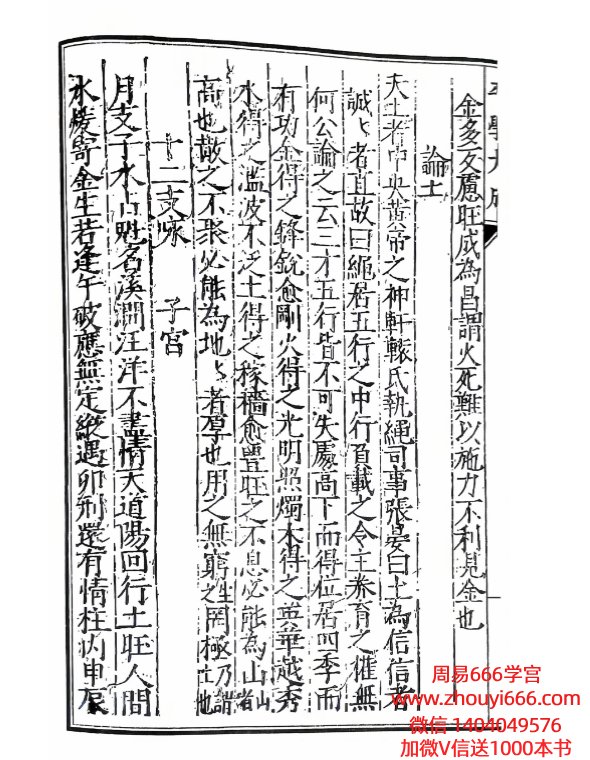 子學大成
金多反屬旺成為昌謂火死難以施力不利見金也
論土
夫土者中央黃帝之神軒轅氏執繩司事張晏曰土為信信者
誠〻者直故曰繩居五行之中行負載之令主養育之權無
何公論之云三才五行皆不可失處高下而得位居四季而
有功金得之鋒銳愈剛火得之光明照燭木得之英華越秀
水得之濫波不泛土得之稼穡愈豐旺之不息必能為山山者
高也散之不聚必能為地〻者厚也用之無窮生之罔極乃謂土也
十二支咏 子宮
月支子水占魁名溪澗汪洋不盡情天道陽回行土旺人間
水暖寄金生若逢午破應無定縱遇卯刑還有情柱內申辰
周易666学宫
www.zhouyi666.com
微信 1404049576
加微V信送1000本书